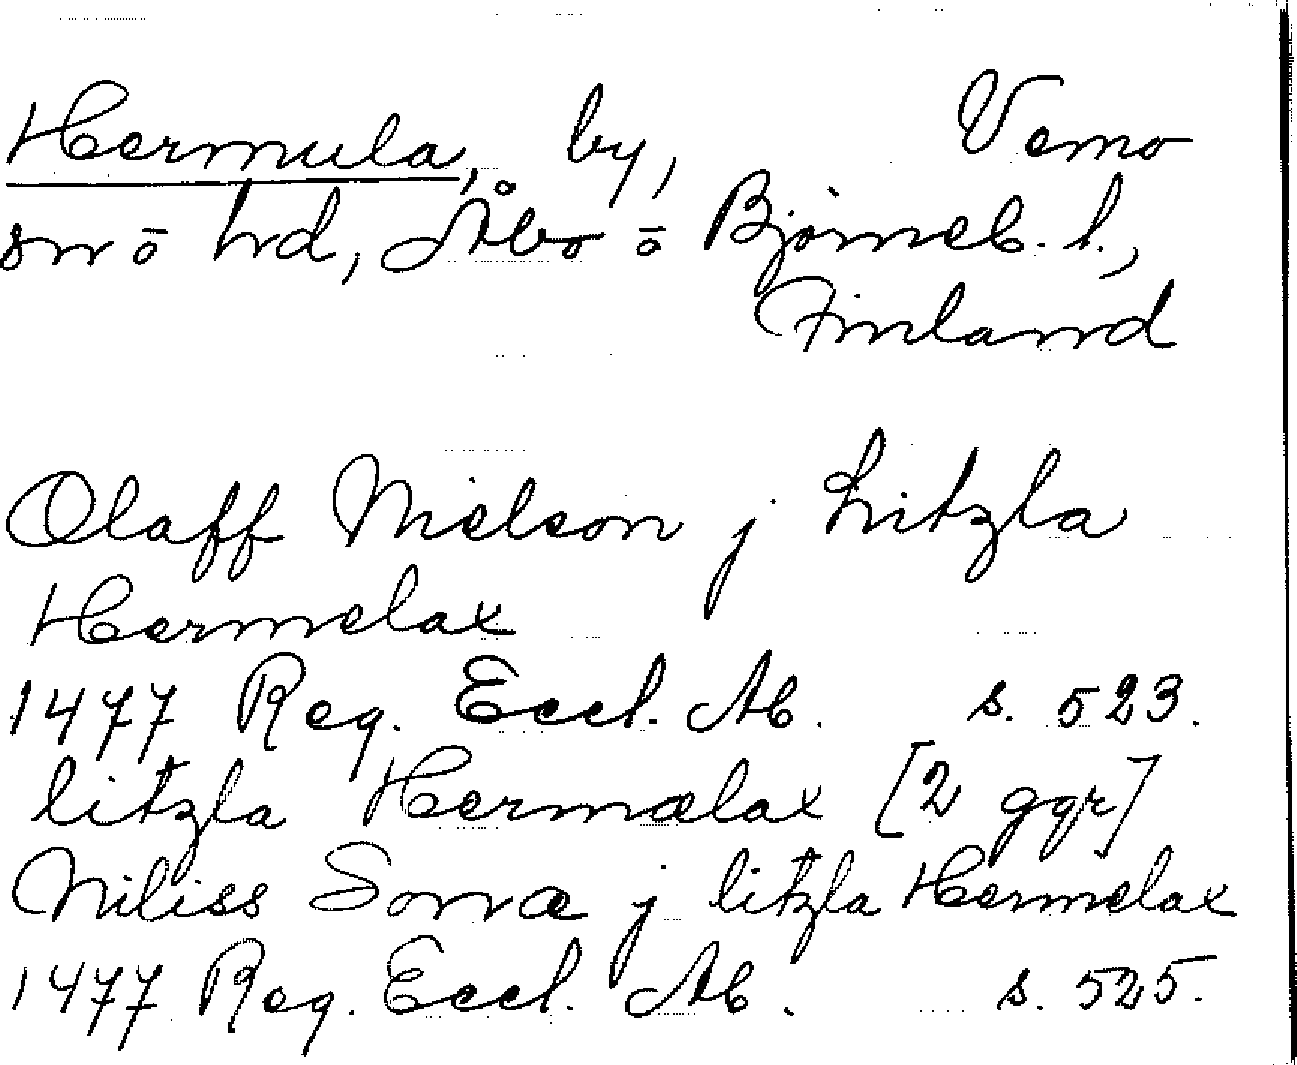 Hermula, by, Vemo
sn o hd, Åbo o Björneb. l.,
Finland
Olaff Nielson j Litzla
Hermelax
1477 Reg. Eccl. Ab. s. 523.
litzla Hermælax [2 ggr]
Niliss Sonæ j litzla Hermelax
1477 Reg. Eccl. Ab. s. 525.